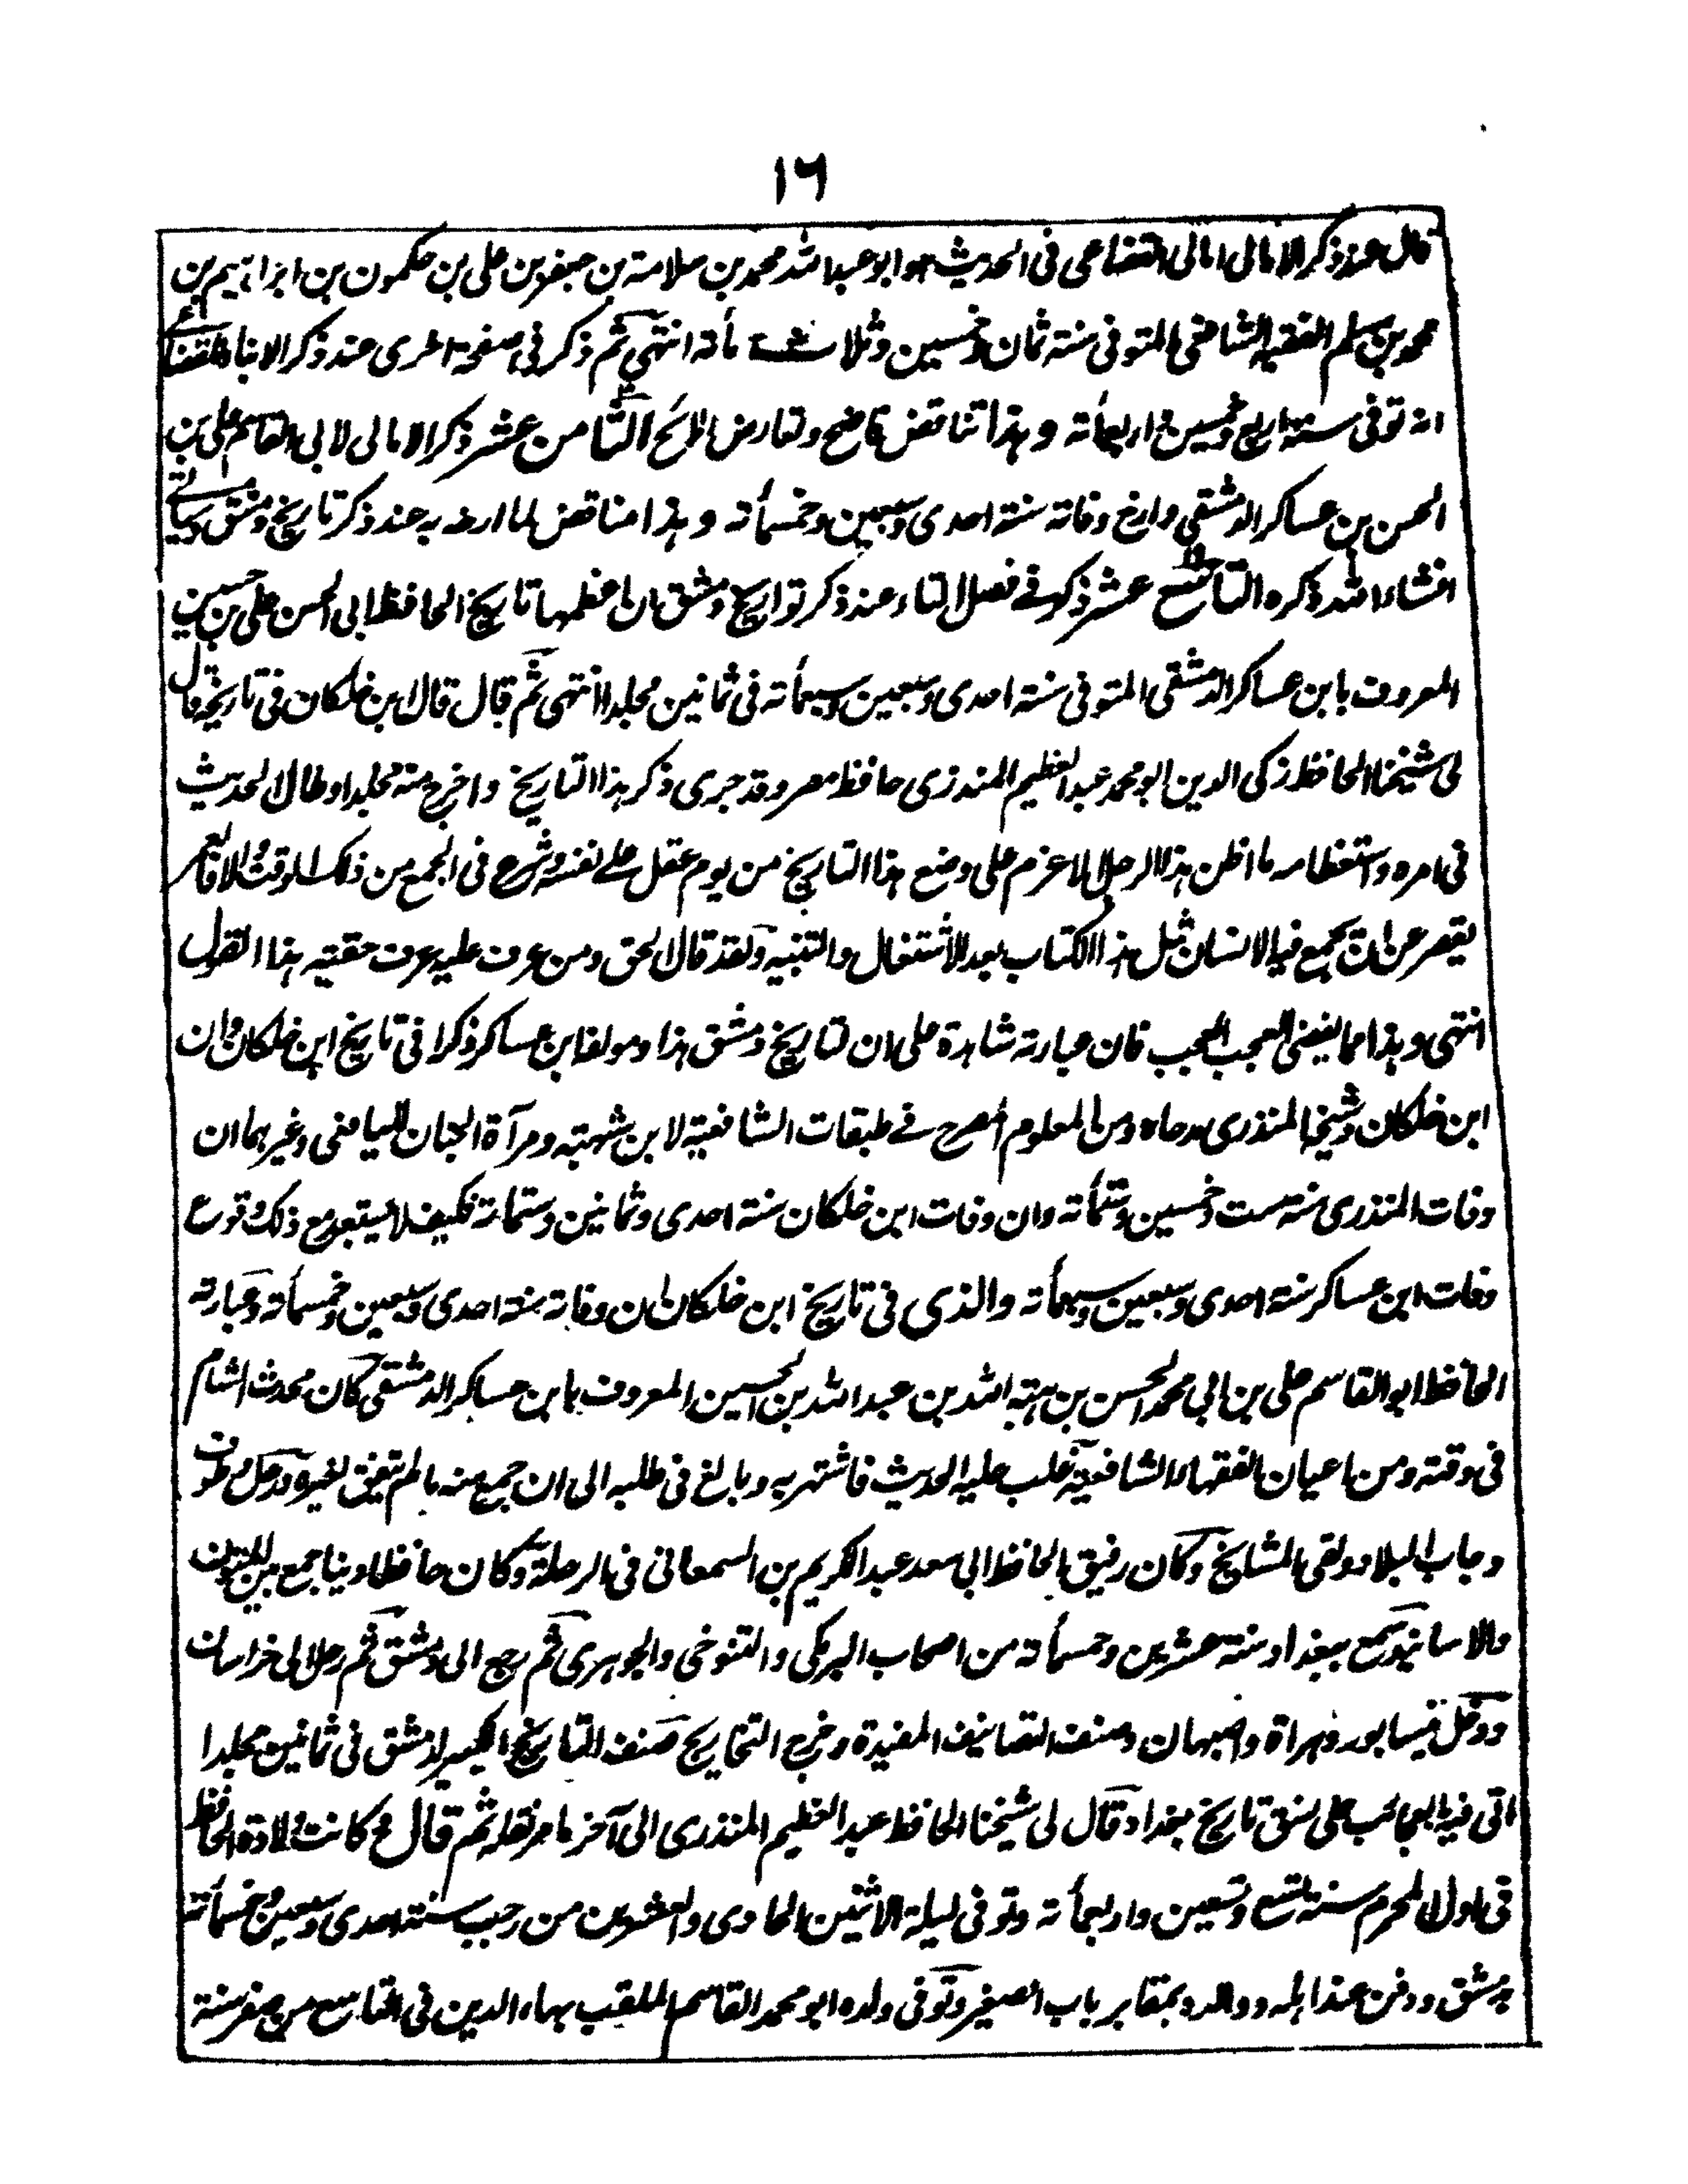 ١٦
قال عند ذكر الامالى امالى القضاعى فى الحديث هو ابو عبد الله محمد بن سلامة بن جعفر بن على بن حكمون بن ابراهيم بن
محمد بن مسلم الفقيه الشافعى المتوفى سنة ثمان وخمسين وثلاث مأة انتهى ثم ذكر فى صفحة اخرى عند ذكر الانباء للقضاعى
انه توفى سنة اربع وخمسين واربعمأة وهذا تناقض فاضح وتعارض لائح الثامن عشر ذكر الامالى لابى القاسم على بن
الحسن بن عساكر الدمشقى وارخ وفاته سنة احدى وسبعين وخمسمأة وهذا مناقض لما ارخه به عند ذكر تاريخ دمشق وسيأتى
انشاء الله ذكره التاسع عشر ذكر فى فصل التاء عند ذكر تواريخ دمشق ان اعظمها تاريخ الحافظ ابى الحسن على بن حسين
المعروف بابن عساكر الدمشقى المتوفى سنة احدى وسبعين وسبعمأة فى ثمانين مجلدا انتهى ثم قال قال ابن خلكان فى تاريخه قال
لى شيخنا الحافظ زكى الدين ابو محمد عبد العظيم المنذرى حافظ مصر وقد جرى ذكر هذا التاريخ واخرج منه مجلدا وطال الحديث
فى امره واستعظامه ما اظن هذا الرجل الا عزم على وضع هذا التاريخ من يوم عقل على نفسه وشرع فى الجمع من ذلك الوقت والا فالعمر
يقصر عن ان يجمع فيه الانسان مثل هذا الكتاب بعد الاشتغال والتنبيه ولقد قال الحق ومن عرف عليه عرف حقيقة هذا القول
انتهى وهذا مما يفضى العجب العجب فان عبارته شاهدة على ان لتاريخ دمشق هذا ومولفه ابن عساكر ذكرا فى تاريخ ابن خلكان وان
ابن خلكان وشيخه المنذرى مدحاه ومن المعلوم المصرح فى طبقات الشافعية لابن شهبة ومرآة الجنان لليافعى وغيرهما ان
وفات المنذرى سنة ست وخمسين وستمأة وان وفات ابن خلكان سنة احدى وثمانين وستمأة فكيف لا يستبعد مع ذلك وقوع
وفات ابن عساكر سنة احدى وسبعين وسبعمأة والذى فى تاريخ ابن خلكان ان وفاته سنة احدى وسبعين وخمسمأة وعبارته
الحافظ ابو القاسم على بن ابى محمد الحسن بن هبة الله بن عبد الله بن الحسين المعروف بابن عساكر الدمشقى كان محدث الشام
فى وقته ومن اعيان الفقهاء الشافعية غلب عليه الحديث فاشتهر به وبالغ فى طلبه الى ان جمع منه ما لم يتفق لغيره ورحل وطوف
وجاب البلاد ولقى المشايخ وكان رفيق الحافظ ابى سعد عبد الكريم بن السمعانى فى الرحلة وكان حافظا دينا جمع بين المتون
والاسانيد سمع ببغداد سنة عشرين وخمسمأة من اصحاب البرمكى والتنوخى والجوهرى ثم رجع الى دمشق ثم رحل الى خراسان
ودخل نيسابور وهراة واصبهان وصنف التصانيف المفيدة وخرج التخاريج صنف التاريخ الكبير لدمشق فى ثمانين مجلدا
اتى فيه بالعجائب على نسق تاريخ بغداد وقال لى شيخنا الحافظ عبد العظيم المنذرى الى آخر ما مر نقله ثم قال وكانت ولادة الحافظ
فى اول المحرم سنة تسع وتسعين واربعمأة وتوفى ليلة الاثنين الحادى والعشرين من رجب سنة احدى وسبعين وخمسمأة
بدمشق ودفن عند اهله ووالده بمقابر باب الصغير وتوفى ولده ابو محمد القاسم الملقب بهاء الدين فى التاسع من صفر سنة